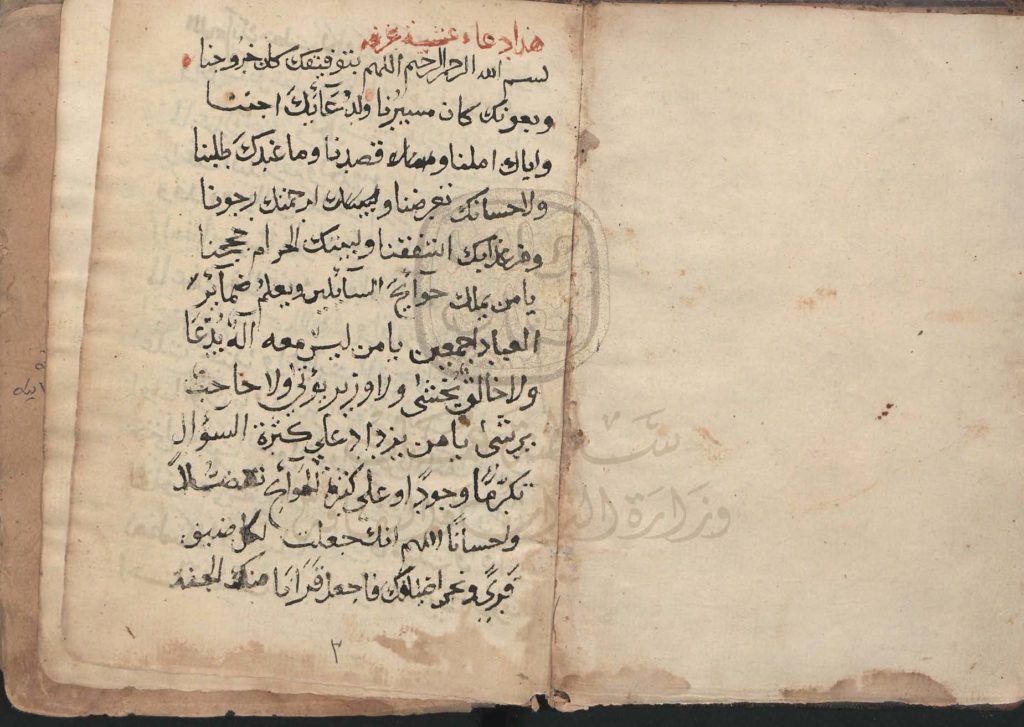 هذا دعاء عشية عرفه
بسم الله الرحمن الرحيم اللهم بتوفيقك كان خروجنا
وبعونك كان مسيرنا ولدعآئك اجبنا
واياك املنا ومنك قصدنا وما عندك طلبنا
ولاحسانك تعرضنا ولبيتك ارحمتك رجونا
ومن عذابك اشفقنا ولبيتك الحرام حججنا
يا من يملك حوآئج السآئلين ويعلم ضمآئر
العباد اجمعين يا من ليس معه اله يدعا
ولا خالق يخشى ولا وزير يؤتى ولا حاجب
يرشى يا من يزداد على كثرة السؤال
تكرمًا وجودًا وعلى كثرة الحوآئج تفضلا
ولحسانًا اللهم انك جعلت لكل ضيف
قرىً ونحن اضيافك فاجعل قرانا منك الجنة
٢